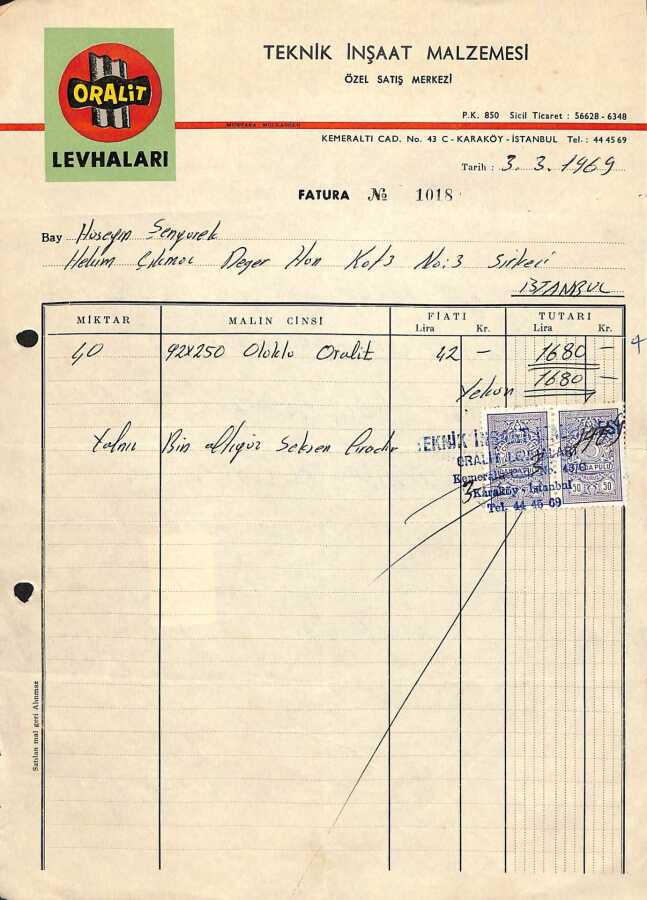 ORALiT
LEVHALARI
TEKNİK İNŞAAT MALZEMESİ
ÖZEL SATIŞ MERKEZİ
P.K. 850 Sicil Ticaret : 56628 - 6348
KEMERALTI CAD. No. 43 C - KARAKÖY - İSTANBUL Tel. : 44 45 69
Tarih : 3.3.1969
FATURA № 1018
Bay Hüseyin Şenyürek
Han Kat 3 No: 3 Sirkeci
İSTANBUL
MİKTAR MALIN CİNSİ FİATI TUTARI
Lira Kr. Lira Kr.
40 92x250 Oluklu Oralit 42 — 1680 —
Yekun 1680 —
Yalnız Bin altıyüz Seksen liradır
TEKNİK İNŞAAT
ORALİT LEVHALARI
Kemeraltı Cad. No. 43/C
Karaköy - İstanbul
Tel. 44 45 69
50 50
Satılan mal geri Alınmaz